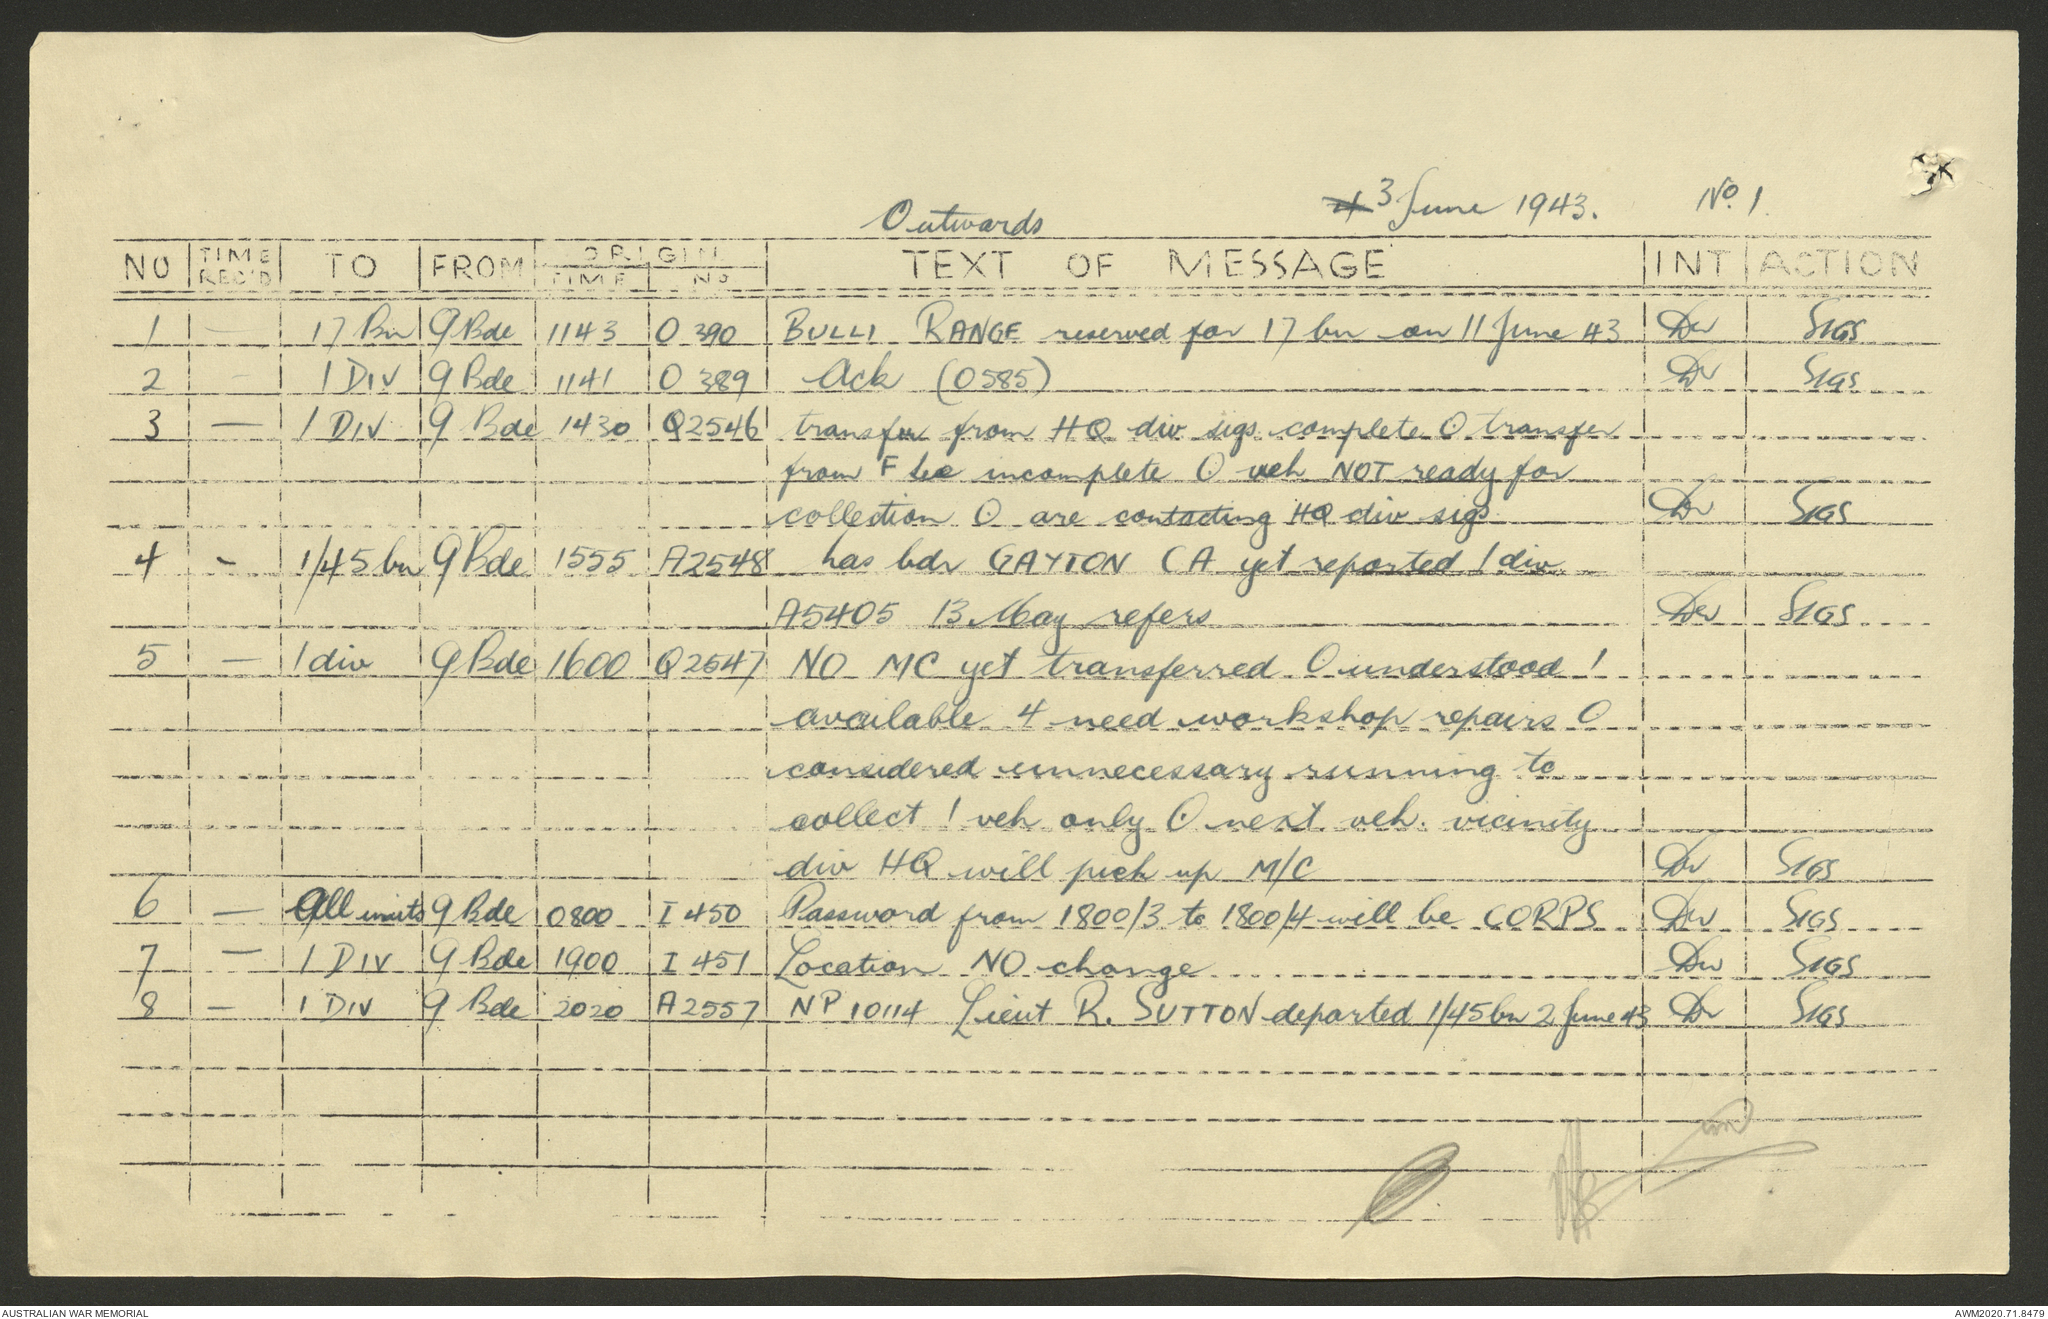 Outwards 4 3 June 1943. No 1.
NO TIME REC'D TO FROM ORIGIN TIME NO TEXT OF MESSAGE INT ACTION
1 — 17 Bn 9 Bde 1143 O 390 BULLI RANGE reserved for 17 bn on 11 June 43 SIGS
2 — 1 DIV 9 Bde 1141 O 389 Ack (O585) SIGS
3 — 1 DIV 9 Bde 1430 Q2546 transfer from HQ div sigs complete O transfer
from F Sec incomplete O veh NOT ready for
collection O are contacting HQ div sigs SIGS
4 - 1/45 bn 9 Bde 1555 A2548 has bdr GAYTON CA yet reported 1 div
A5405 13 May refers SIGS
5 — 1 div 9 Bde 1600 Q2547 NO MC yet transferred O understood 1
available 4 need workshop repairs O
considered unnecessary running to
collect 1 veh only O next veh. vicinity
div HQ will pick up M/C SIGS
6 — All units 9 Bde 0800 I 450 Password from 1800/3 to 1800/4 will be CORPS SIGS
7 — 1 DIV 9 Bde 1900 I 451 Location NO change SIGS
8 — 1 DIV 9 Bde 2020 A2557 NP 10114 Lieut R. SUTTON departed 1/45 bn 2 June 43 SIGS
AUSTRALIAN WAR MEMORIAL AWM2020.71.8479